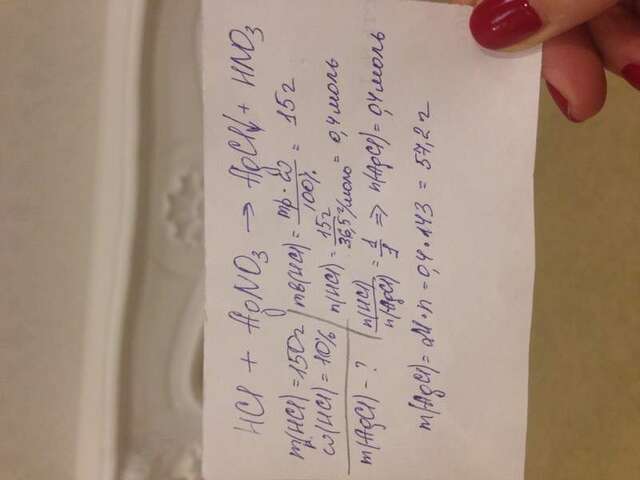 HCl + AgNO₃ → AgCl↓ + HNO₃
mр(HCl) = 150г
ω(HCl) = 10%
m(AgCl) - ?
mв(HCl) = mр · ω / 100% = 15г
n(HCl) = 15г / 36,5г/моль = 0,4 моль
n(HCl) / n(AgCl) = 1/1 => n(AgCl) = 0,4 моль
m(AgCl) = M · n = 0,4 · 143 = 57,2г